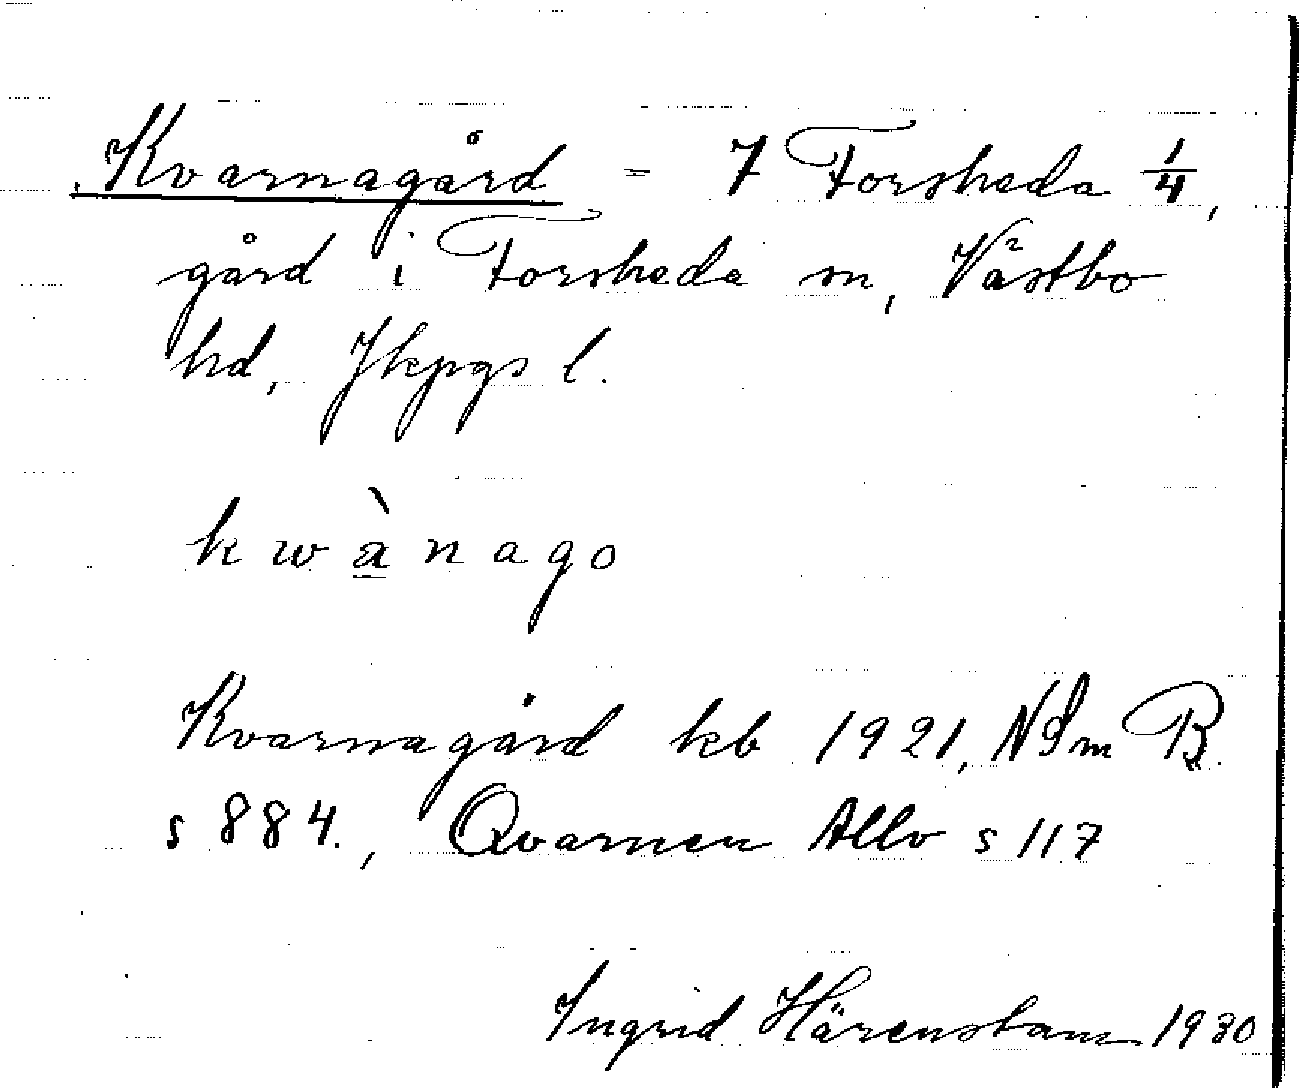 Kvarnagård = 7 Forsheda 1/4,
gård i Forsheda sn, Västbo
hd, Jkpgs l.
kwà̲nago
Kvarnagård kb 1921, NSm B
s 884., Qvarnen Allv s 117
Ingrid Härenstam 1930